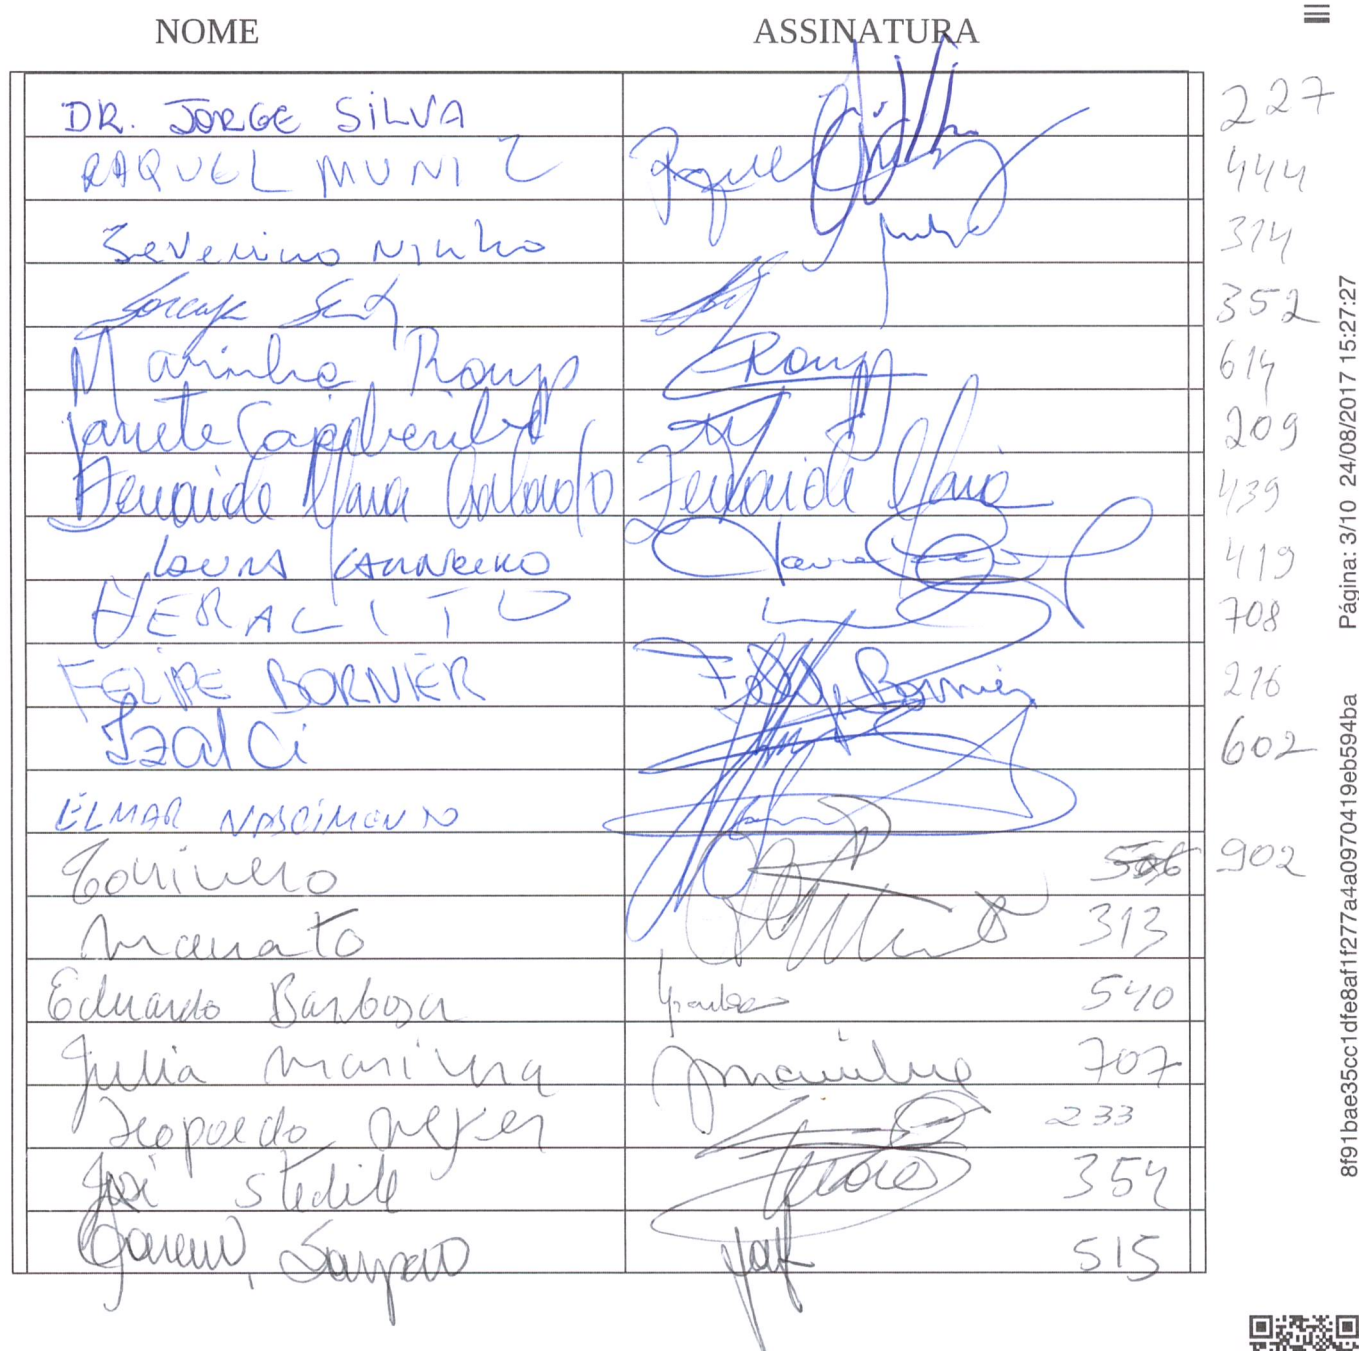 NOME ASSINATURA
DR. JORGE SILVA 227
RAQUEL MUNIZ Raquel 444
Severino Ninho 314
Soraya 352
Marinha Raupp Raupp 614
Janete Capiberibe 209
Zenaide Maia Calado Zenaide Maia 439
LAURA CARNEIRO Laura 419
HERÁCLITO 708
FELIPE BORNIER Felipe Bornier 216
Izalci 602
ELMAR NASCIMENTO
Toninho 902
Manato 313
Eduardo Barbosa 540
Julia Marinha Jmarinha 707
Leopoldo Meyer 233
José Stedile 354
Sampaio 515
Página: 3/10 24/08/2017 15:27:27
8f91bae35cc1dfe8af1f277a4a0970419eb594ba